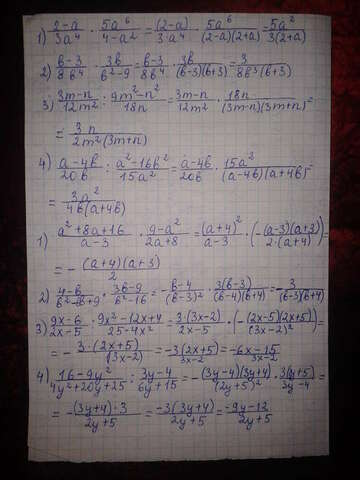 1) (2-a)/(3a⁴) · (5a⁶)/(4-a²) = (2-a)/(3a⁴) · (5a⁶)/((2-a)(2+a)) = (5a²)/(3(2+a))
2) (b-3)/(8b⁴) · (3b)/(b²-9) = (b-3)/(8b⁴) · (3b)/((b-3)(b+3)) = 3/(8b³(b+3))
3) (3m-n)/(12m²) : (9m²-n²)/(18n) = (3m-n)/(12m²) · (18n)/((3m-n)(3m+n)) =
= (3n)/(2m²(3m+n))
4) (a-4b)/(20b) : (a²-16b²)/(15a²) = (a-4b)/(20b) · (15a²)/((a-4b)(a+4b)) =
= (3a²)/(4b(a+4b))
1) (a²+8a+16)/(a-3) · (9-a²)/(2a+8) = (a+4)²/(a-3) · (-((a-3)(a+3))/(2·(a+4))) =
= -((a+4)(a+3))/2
2) (4-b)/(b²-6b+9) · (3b-9)/(b²-16) = -(b-4)/((b-3)²) · (3(b-3))/((b-4)(b+4)) = -3/((b-3)(b+4))
3) (9x-6)/(2x-5) : (9x²-12x+4)/(25-4x²) = (3·(3x-2))/(2x-5) · (-((2x-5)(2x+5))/((3x-2)²)) =
= -(3·(2x+5))/(3x-2) = (-3(2x+5))/(3x-2) = (-6x-15)/(3x-2)
4) (16-9y²)/(4y²+20y+25) : (3y-4)/(6y+15) = -((3y-4)(3y+4))/((2y+5)²) · (3(2y+5))/(3y-4) =
= -((3y+4)·3)/(2y+5) = (-3(3y+4))/(2y+5) = (-9y-12)/(2y+5)